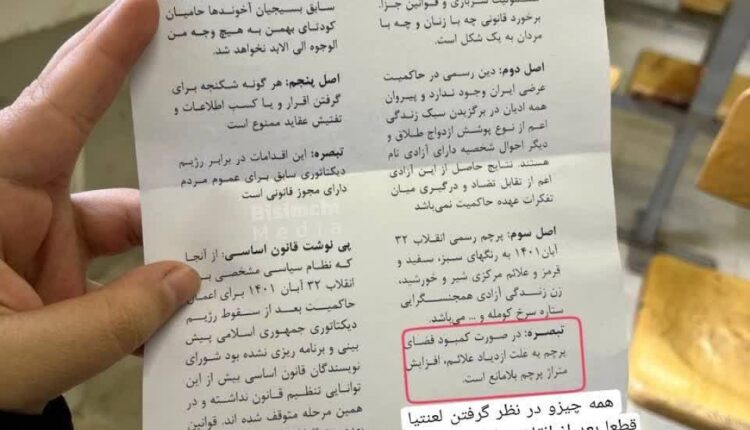 سربازی و قوانین جزا،
برخورد قانونی چه با زنان و چه با
مردان به یک شکل است.
اصل دوم: دین رسمی در حاکمیت
عرضی ایران وجود ندارد و پیروان
همه ادیان در برگزیدن سبک زندگی
اعم از نوع پوشش ازدواج طلاق و
دیگر احوال شخصیه دارای آزادی تام
هستند. نتایج حاصل از این آزادی
اعم از تقابل تضاد و درگیری میان
تفکرات عهده حاکمیت نمی‌باشد
اصل سوم: پرچم رسمی انقلاب ۳۲
آبان ۱۴۰۱ به رنگهای سبز، سفید و
قرمز و علائم مرکزی شیر و خورشید،
زن زندگی آزادی همجنسگرایی
ستاره سرخ کومله و ... می‌باشد.
تبصره: در صورت کمبود فضای
پرچم به علت ازدیاد علائم، افزایش
متراژ پرچم بلامانع است.
سابق بسیجیان آخوندها حامیان
کودتای بهمن به هیچ وجه من
الوجوه الی الابد نخواهد شد.
اصل پنجم: هر گونه شکنجه برای
گرفتن اقرار و یا کسب اطلاعات و
تفتیش عقاید ممنوع است
تبصره: این اقدامات در برابر رژیم
دیکتاتوری سابق برای عموم مردم
دارای مجوز قانونی است
Bisimchi
Media
پی نوشت قانون اساسی: از آنجا
که نظام سیاسی مشخصی
انقلاب ۳۲ آبان ۱۴۰۱ برای اعمال
حاکمیت بعد از سقوط رژیم
دیکتاتوری جمهوری اسلامی پیش
بینی و برنامه ریزی نشده بود شورای
نویسندگان قانون اساسی بیش از این
توانایی تنظیم قانون نداشته و در
همین مرحله متوقف شده اند. قوانین
همه چیزو در نظر گرفتن لعنتیا
قطعا بعد از